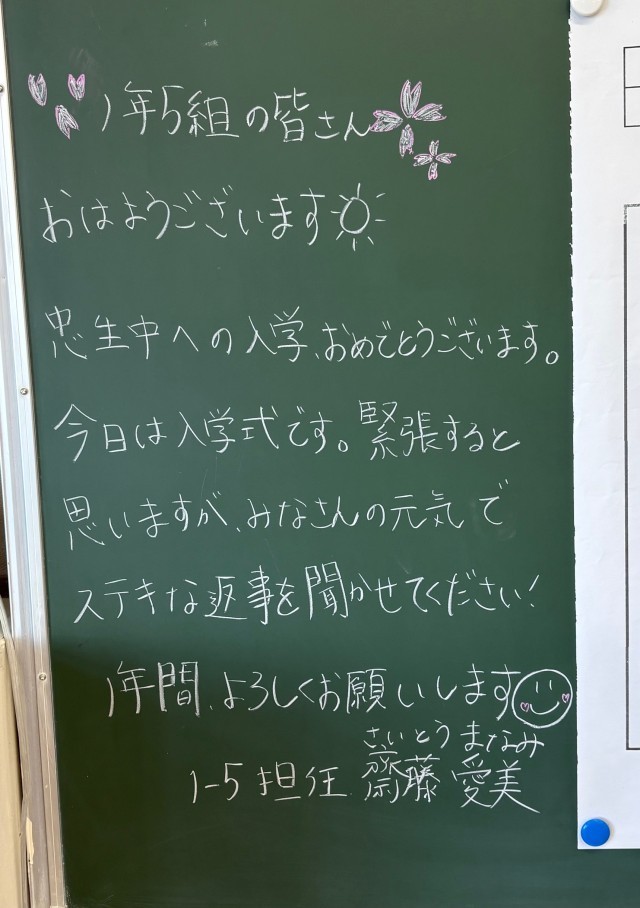 1年5組の皆さん
おはようございます
忠生中への入学、おめでとうございます。
今日は入学式です。緊張すると
思いますが、みなさんの元気で
ステキな返事を聞かせてください!
1年間、よろしくお願いします
さいとう まなみ
1-5 担任 齋藤 愛美